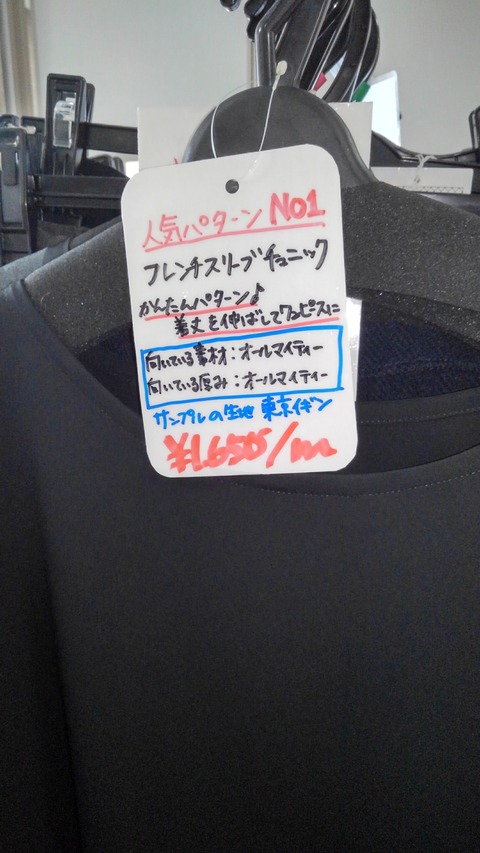 人気パターン No1
フレンチスリーブチュニック
かんたんパターン♪
着丈を伸ばしてワンピースに
向いている素材：オールマイティー
向いている厚み：オールマイティー
サンプルの生地 東京イギン
¥1.650/m